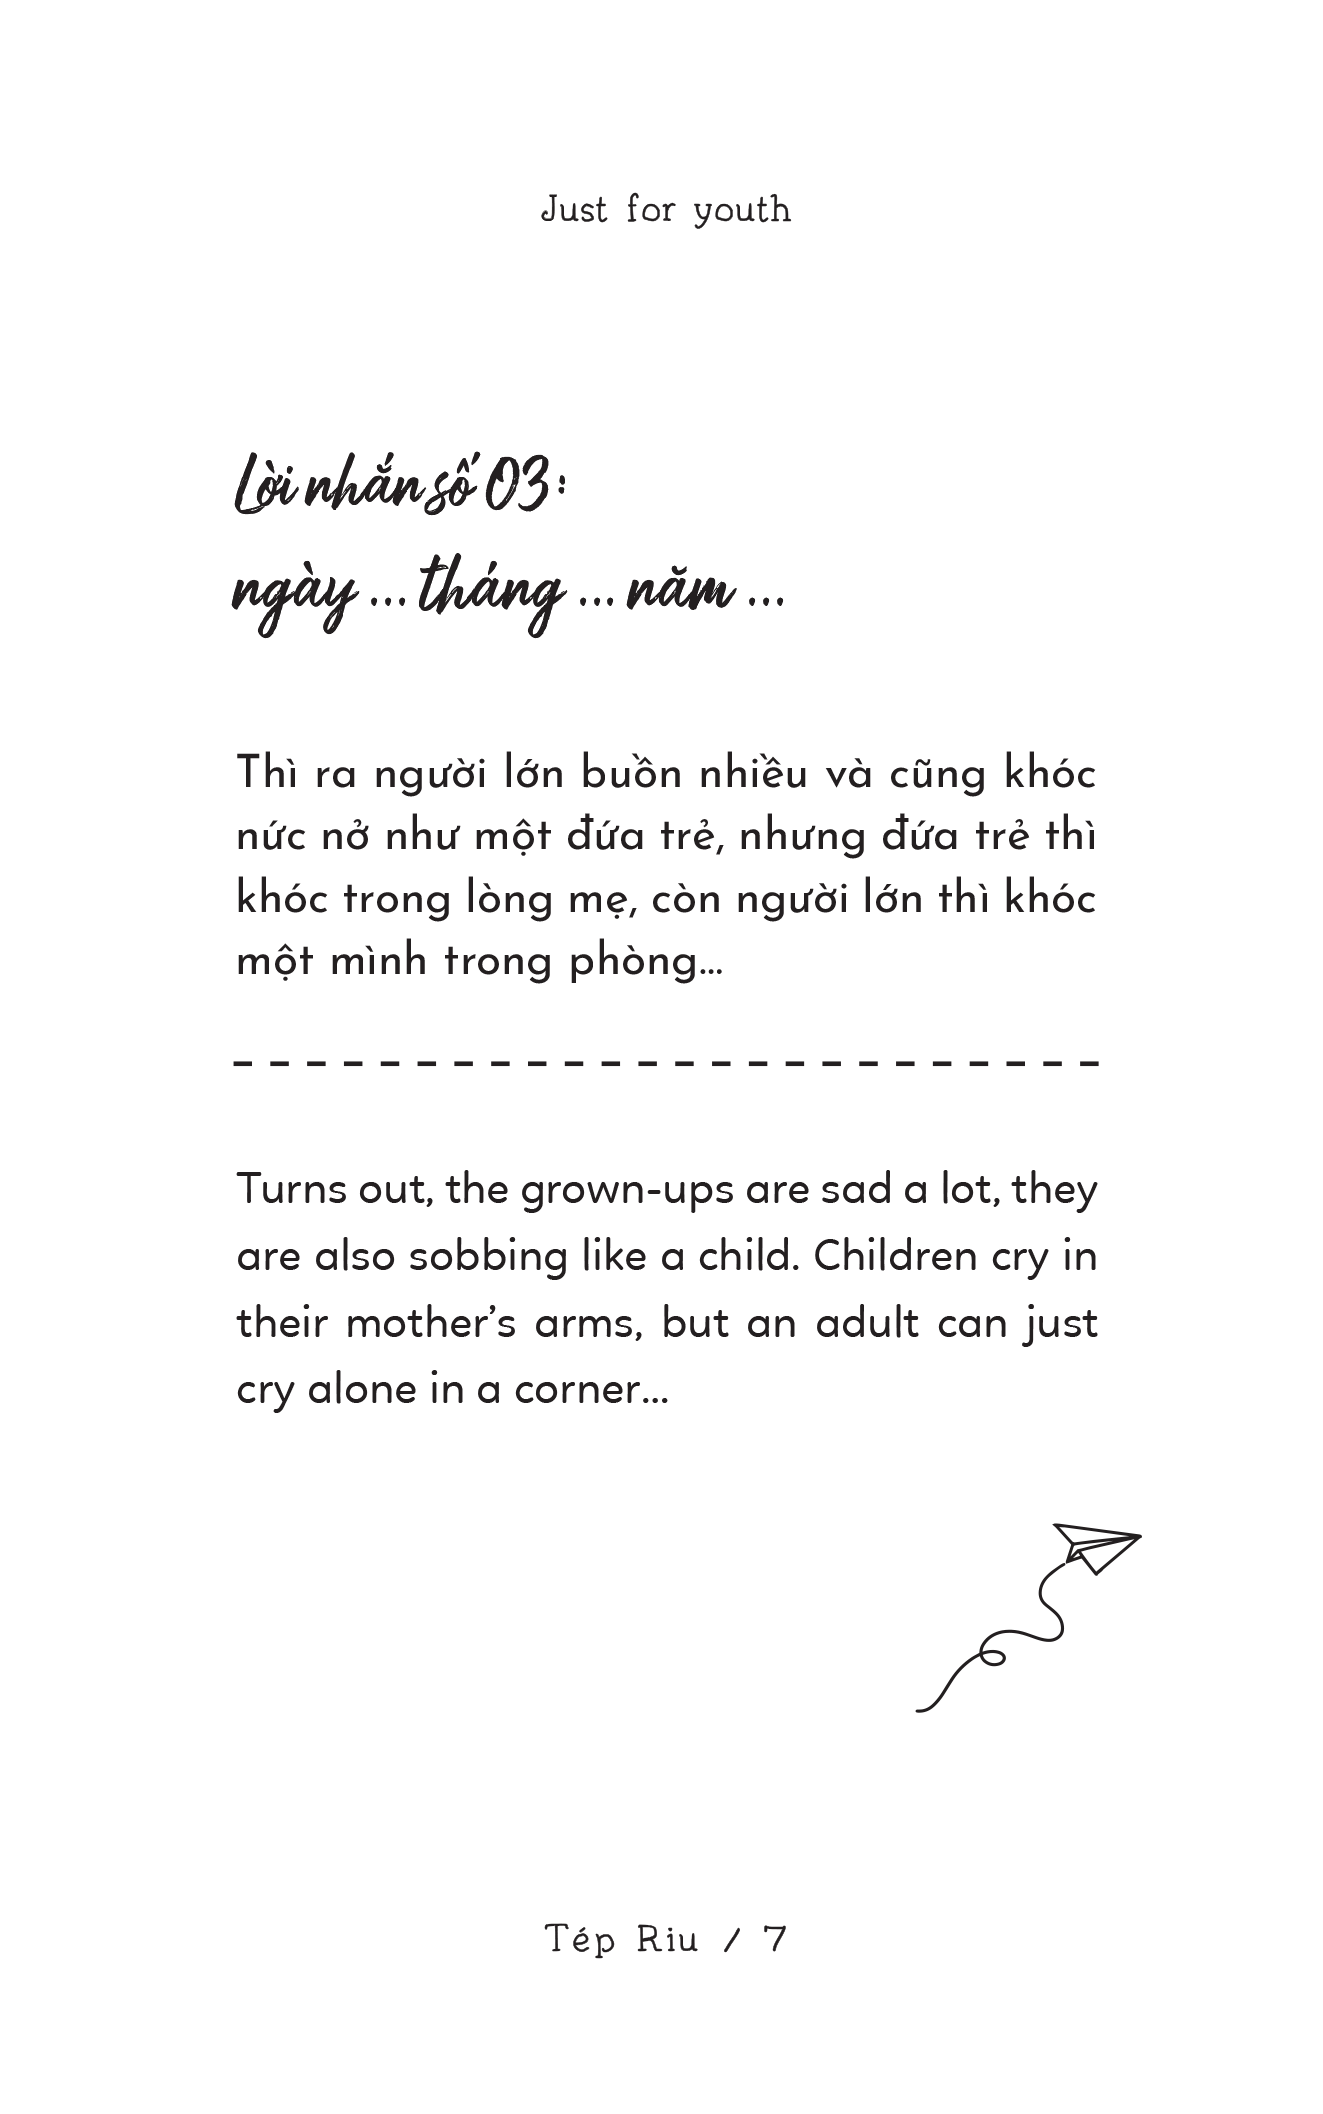 Just for youth
Lời nhắn số 03:
ngày ... tháng ... năm ...
Thì ra người lớn buồn nhiều và cũng khóc
nức nở như một đứa trẻ, nhưng đứa trẻ thì
khóc trong lòng mẹ, còn người lớn thì khóc
một mình trong phòng...
Turns out, the grown-ups are sad a lot, they
are also sobbing like a child. Children cry in
their mother’s arms, but an adult can just
cry alone in a corner...
Tép Riu / 7